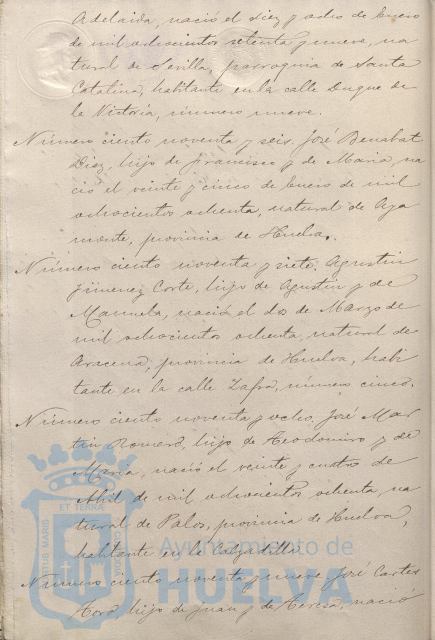 Adelaida, nació el diez y ocho de Enero
de mil ochocientos setenta y nueve, na
tural de Sevilla, parroquia de Santa
Catalina, habitante en la calle Duque de
la Victoria, número nueve.
Número ciento noventa y seis. José Benabat
Diaz, hijo de Francisco y de Maria, na
ció el veinte y cinco de Enero de mil
ochocientos ochenta, natural de Aya
monte, provincia de Huelva.
Número ciento noventa y siete. Agustin
Jimenez Corte, hijo de Agustin y de
Manuela, nació el dos de Marzo de
mil ochocientos ochenta, natural de
Aracena, provincia de Huelva, habi
tante en la calle Zafra, número cinco.
Número ciento noventa y ocho. José Mar
tin Romero, hijo de Teodomiro y de
Maria, nació el veinte y cuatro de
Abril de mil ochocientos ochenta, na
tural de Palos, provincia de Huelva,
habitante en la Calzadilla.
Número ciento noventa y nueve. José Cortes
hijo de Juan y de Teresa, nació
PORTUS MARIS ET TERRÆ CUSTODIA
Ayuntamiento de
HUELVA